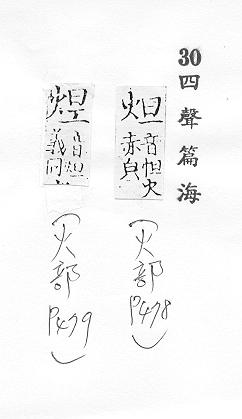 30四聲篇海
炟
音怛火
赤皃
（火部P478）
音炟
義同
（火部P479）